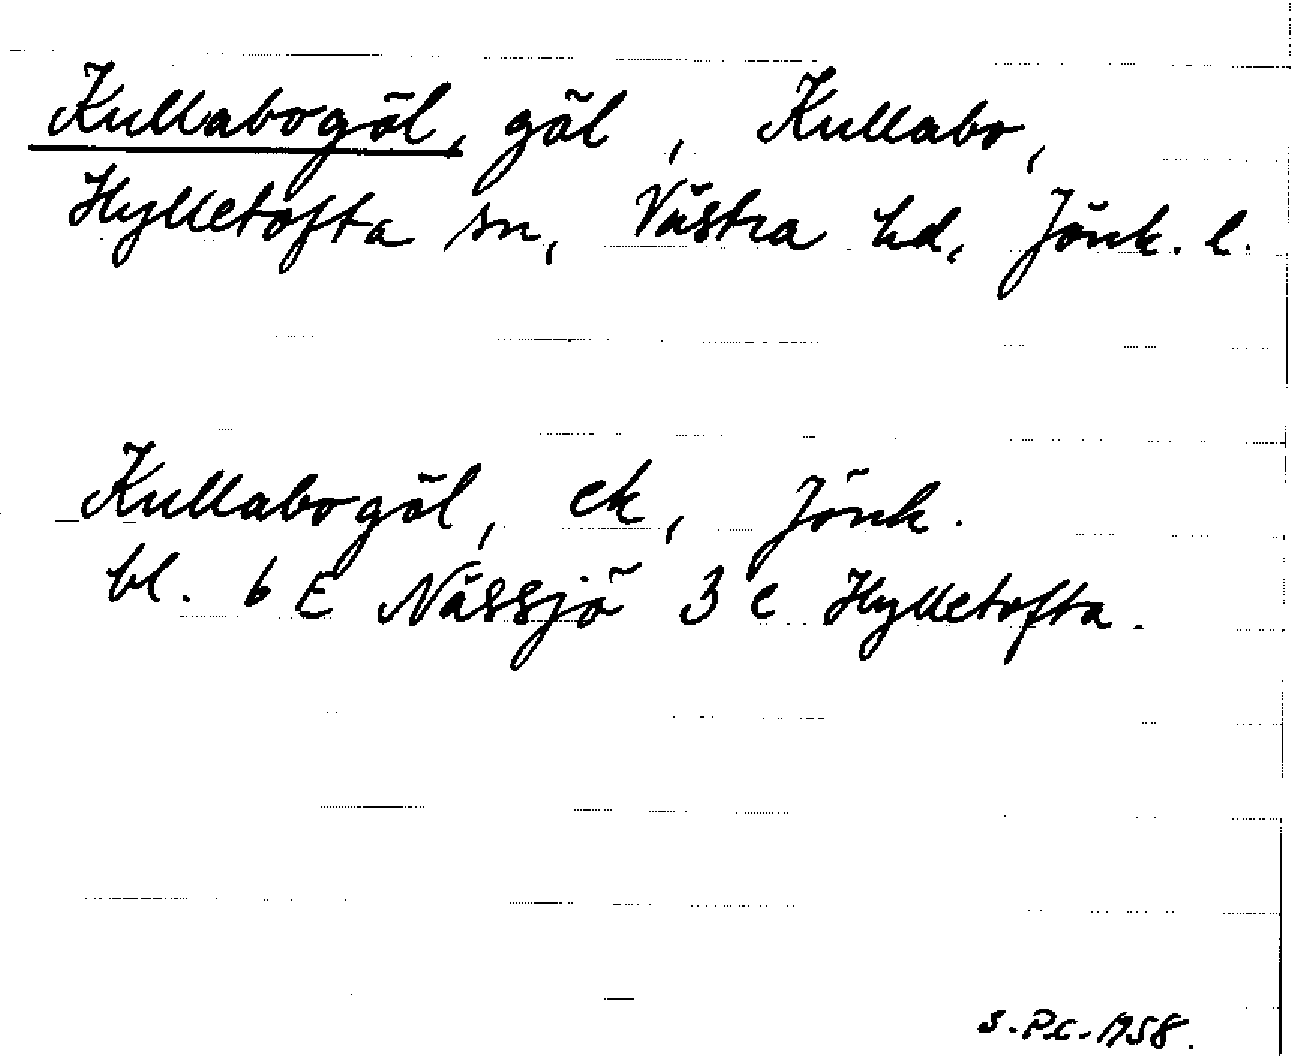 Kullabogöl, göl, Kullabo,
Hylletofta sn, Västra hd, Jönk. l.
Kullabogöl, ek, Jönk.
bl. 6 E Nässjö 3 e Hylletofta.
S.P.C. 1958.